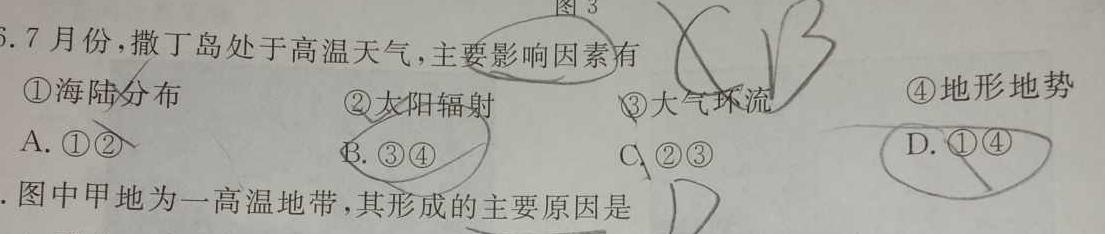 图 3
6. 7 月份,撒丁岛处于高温天气,主要影响因素有
CB
①海陆分布 ②太阳辐射 ③大气环流 ④地形地势
A. ①② B. ③④ C. ②③ D. ①④
. 图中甲地为一高温地带,其形成的主要原因是 D